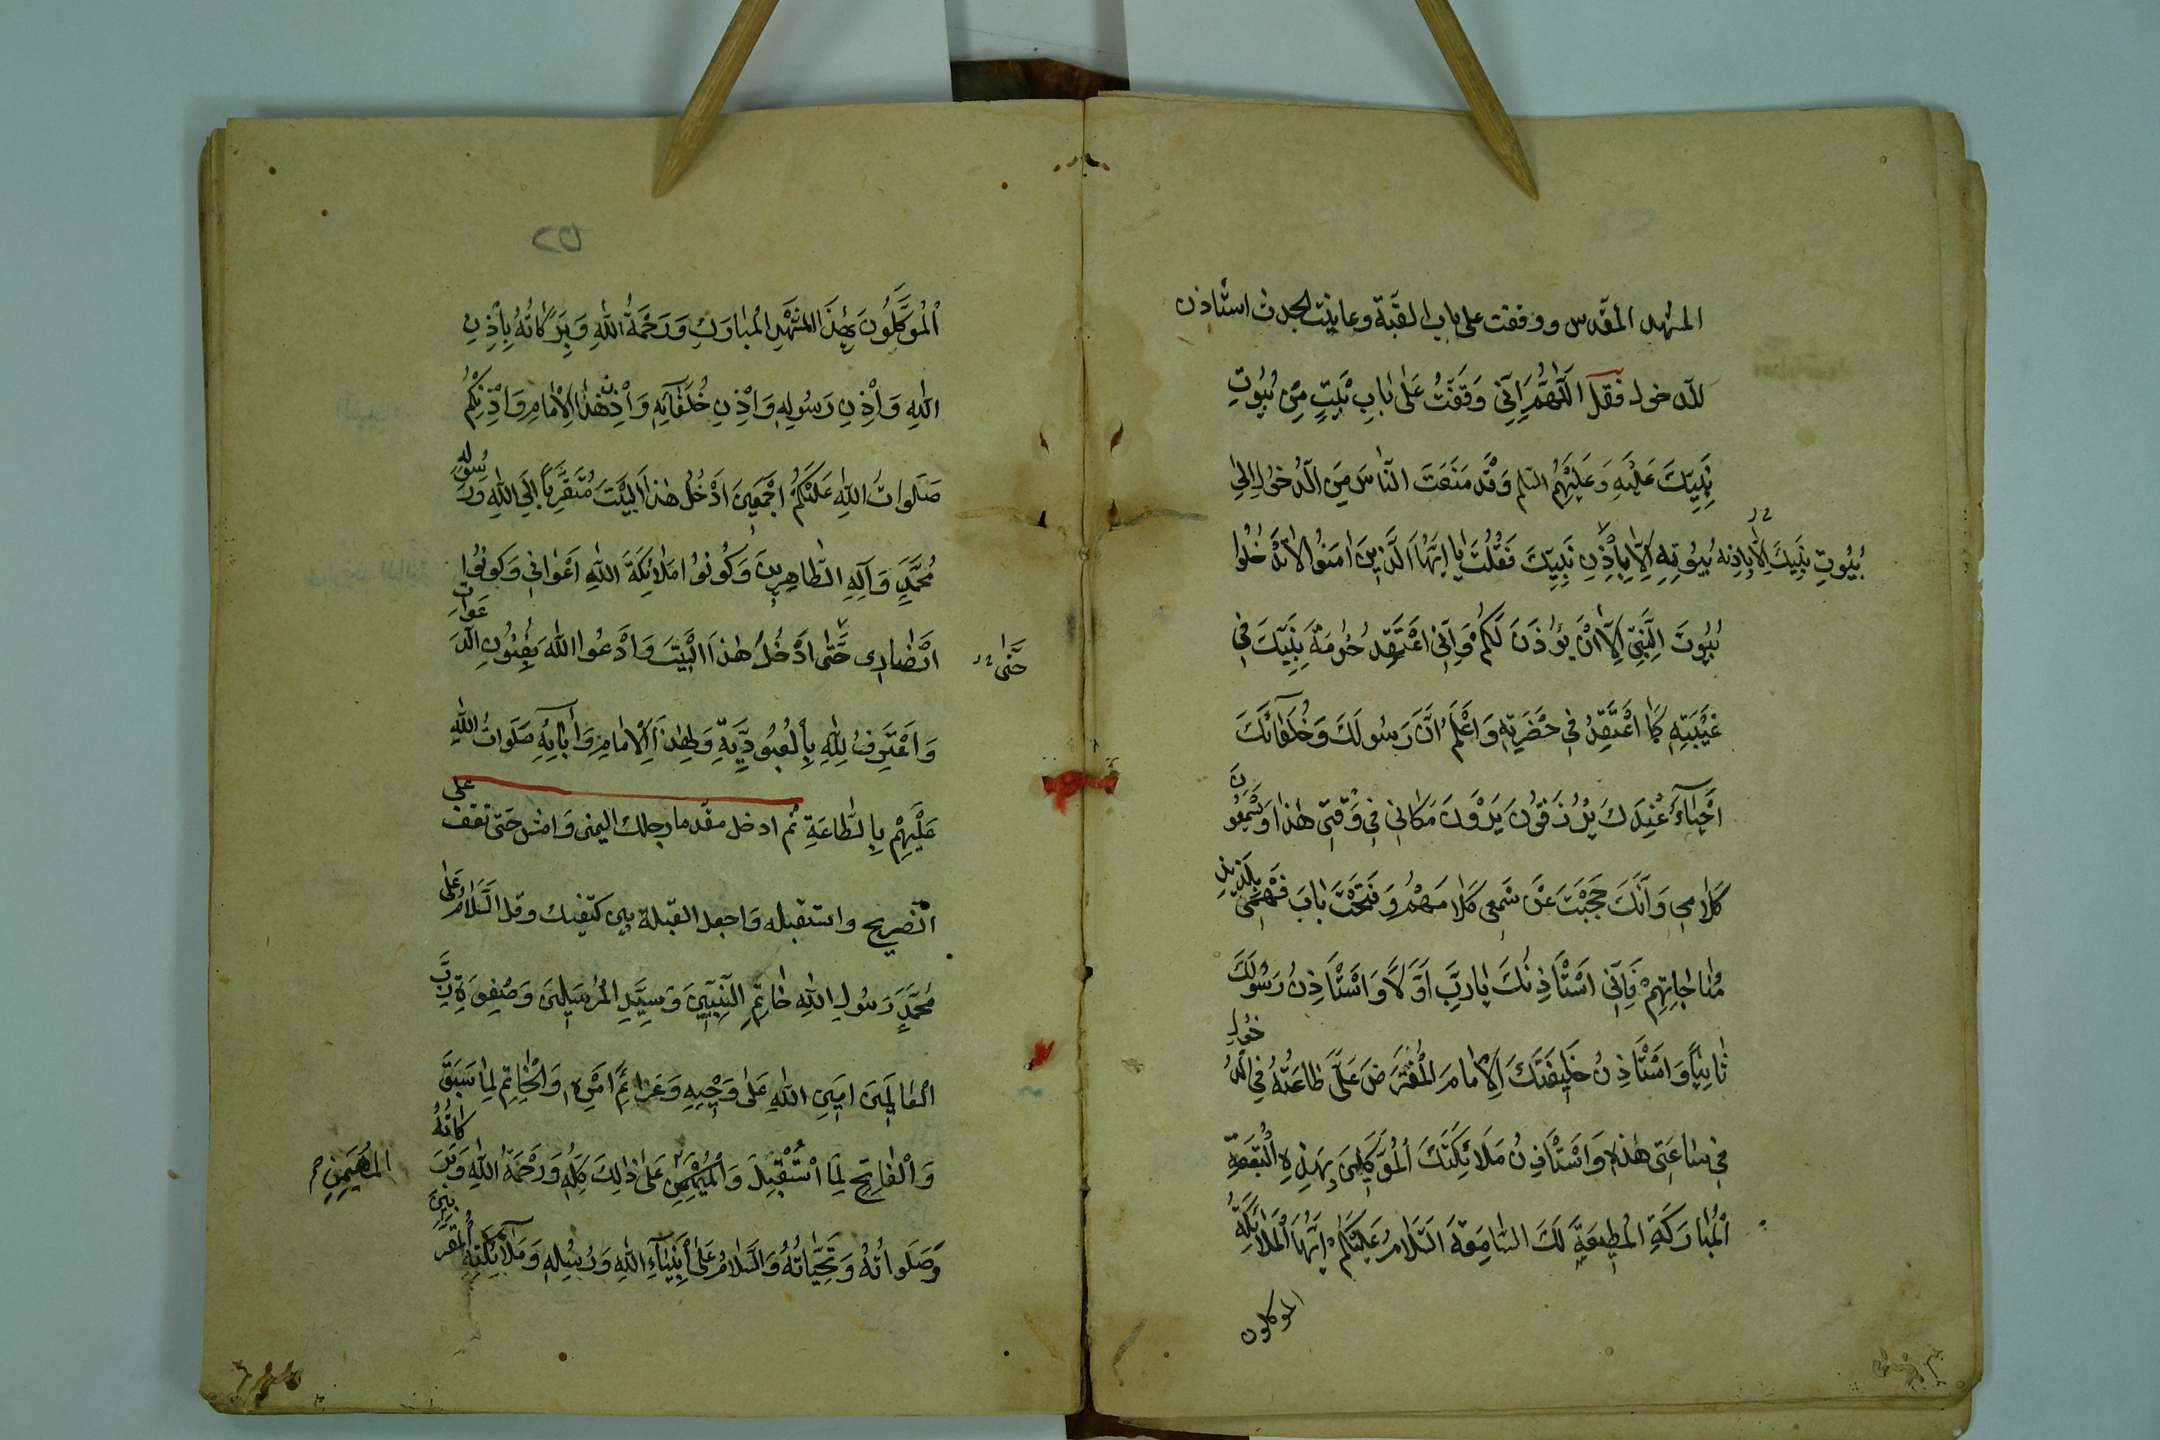 المشهد المقدس ووقفت على باب القبة وعاينت الجدث استاذن
للدخول فقل اَللّٰهُمَّ اِنّي وَقَفْتُ عَلىٰ بابِ بَيْتٍ مِنْ بُيُوتِ
نَبِيِّكَ عَلَيْهِ وَعَلَيْهِمُ السلم وَقَدْ مَنَعْتَ النّاسَ مِنَ الدُّخُولِ اِلىٰ
بُيُوتِ نَبِيِّكَ اِلّا بِاِذنِه بُيُوتِهِ اِلّا بِاِذْنِ نَبِيِّكَ فَقُلْتَ يا اَيُّهَا الَّذينَ اٰمَنُوا لا تَدْخُلُوا
بُيُوتَ النَّبِيِّ اِلّا اَنْ يُؤْذَنَ لَكُمْ وَاِنّي اَعْتَقِدُ حُرْمَةَ نَبِيِّكَ في
غَيْبَتِهِ كَمٰا اَعْتَقِدُ في حَضْرَتِهِ وَاَعْلَمُ اَنَّ رَسُولَكَ وَخُلَفٰائَكَ
اَحْيٰاءٌ عِنْدَكَ يُرْزَقُونَ يَرَوْنَ مَكٰاني في وَقْتي هٰذا وَيَسْمَعُونَ
كَلٰامي وَاَنَّكَ حَجَبْتَ عَنْ سَمْعي كَلٰامَهُمْ وَفَتَحْتَ بٰابَ فَهْمي بِلَذيذِ
مُنٰاجٰاتِهِمْ فَاِنّي اَسْتَاْذِنُكَ يٰا رَبِّ اَوَّلًا وَاَسْتَاْذِنُ رَسُولَكَ
ثٰانِيًا وَاَسْتَاْذِنُ خَليفَتَكَ الْاِمٰامَ الْمُفْتَرَضَ عَلَيَّ طٰاعَتُهُ في الدُّخُولِ
في سٰاعَتي هٰذِهِ وَاَسْتَاْذِنُ مَلٰائِكَتَكَ الْمُوَكَّلينَ بِهٰذِهِ الْبُقْعَةِ
الْمُبٰارَكَةِ الْمُطيعَةِ لَكَ السّٰامِعَةِ اَلسَّلٰامُ عَلَيْكُمْ اَيُّهَا الْمَلٰائِكَةُ
الموكلون
الْمُوَكَّلُونَ بِهٰذَا الْمَشْهَدِ الْمُبٰارَكِ وَرَحْمَةُ اللهِ وَبَرَكٰاتُهُ بِاِذْنِ
اللهِ وَاِذْنِ رَسُولِهِ وَاِذْنِ خُلَفٰائِهِ وَاِذْنِ هٰذَا الْاِمٰامِ وَاِذْنِكُمْ
صَلَوٰاتُ اللهِ عَلَيْكُمْ اَجْمَعينَ اَدْخُلُ هٰذَا الْبَيْتَ مُتَقَرِّبًا اِلَى اللهِ وَرَسُولِهِ
مُحَمَّدٍ وَآلِهِ الطّٰاهِرينَ وَكُونُوا مَلٰائِكَةَ اللهِ اَعْوٰاني وَكُونُوا
اَنْصٰاري حَتّٰى اَدْخُلَ هٰذَا الْبَيْتَ وَاَدْعُوا اللهَ بِفُنُونِ الدَّعَوٰاتِ
حَتّٰى
وَاَعْتَرِفُ لِلّٰهِ بِالْعُبُودِيَّةِ وَلِهٰذَا الْاِمٰامِ وَآبٰائِهِ صَلَوٰاتُ اللهِ
عَلَيْهِمْ بِالطّٰاعَةِ ثم ادخل مقدما رجلك اليمنى وَامش حَتى تقف على
الضريح واستقبله وَاجعل القبلة بين كتفيك وقل اَلسَّلٰامُ عَلىٰ
مُحَمَّدٍ رَسُولِ اللهِ خٰاتَمِ النَّبِيّينَ وَسَيِّدِ الْمُرْسَلينَ وَصَفْوَةِ رَبِّ
الْعٰالَمينَ اَمينِ اللهِ عَلىٰ وَحْيِهِ وَعَزٰائِمِ اَمْرِهِ وَالْخٰاتِمِ لِمٰا سَبَقَ
وَالْفٰاتِحِ لِمَا اسْتُقْبِلَ وَالْمُهَيْمِنِ عَلىٰ ذٰلِكَ كُلِّهِ وَرَحْمَةُ اللهِ وَبَرَكٰاتُهُ
المُهَيْمِنِ
وَصَلَوٰاتُهُ وَتَحِيّٰاتُهُ وَالسَّلٰامُ عَلىٰ اَنْبِيٰاءِ اللهِ وَرُسُلِهِ وَمَلٰائِكَتِهِ الْمُقَرَّبينَ